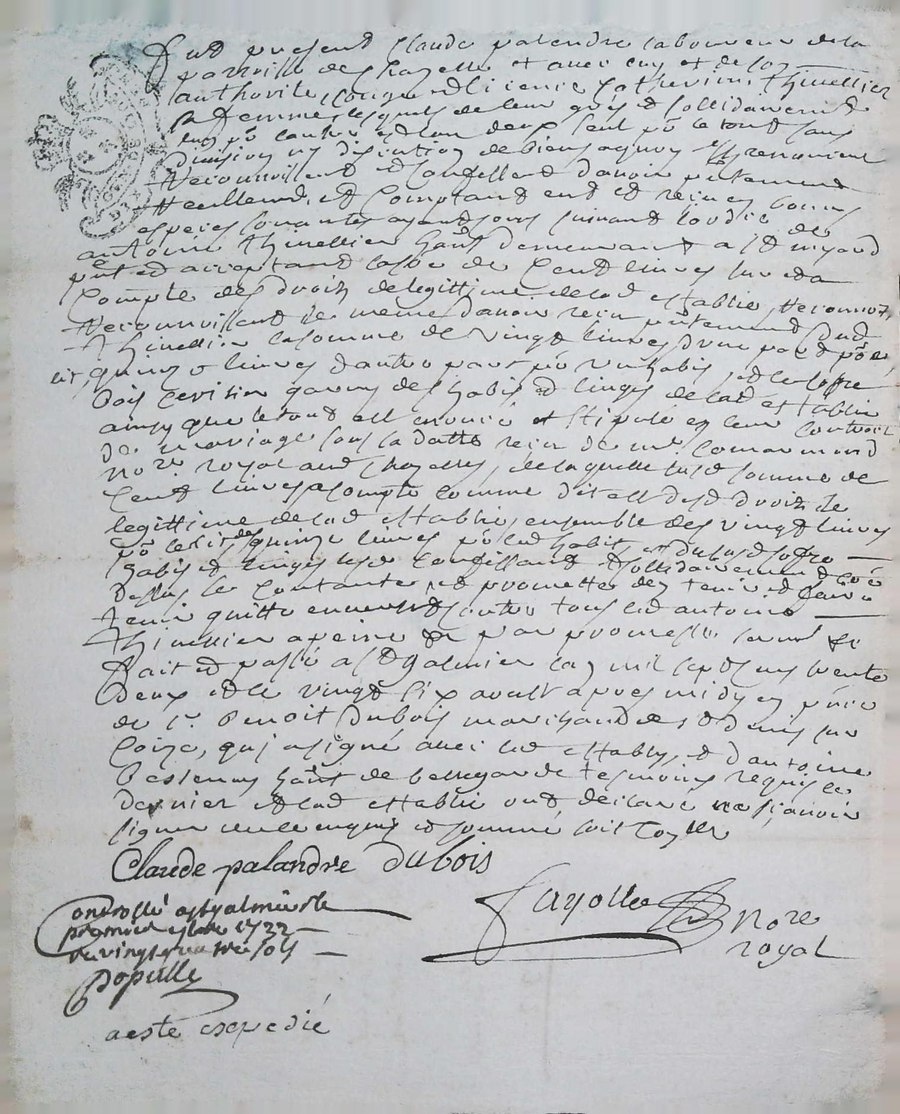 fut present Claude palandre laboureur de la
parroisse de Chazelle et avec luy et de son
authorité, Congé et licence Catherine thinellier
sa femme lesquels de leur gré et sollidairement
lun pō lautre et lun deux seul pō le tout sans
division ny discution de biens a quoy renoncent
reconnoissent et Confessent davoir pntement
reellement et Comptant eu et receu en bonnes
especes sonantes ayant cours suivant
antoine thinellier demeurant a St
pnt et acceptant la sōe de Cent livres
Compte des droits de legittime de lad establie,
Reconnoissent de meme davoir receu pntement dud
thinellier la somme de vingt livres dune part pō
lit, quinze livres dautre part pō un habit, et le coffre
bois cerisier garny des habits et linges de lad establie
ainsy que le tout est enoncé et stipulé en leur Contract
de mariage sous sa datte receu de me.
nore. royal aud Chazelles, de laquelle susd somme de
Cent livres a compte comme dit est desd droits de
legittime de lad establie, ensemble des vingt livres
pō le lit des quinze livres pō led habit et dususd coffre
habits et linges
dessus se Contantent et promettent den tenir et faire
tenir quitte envers et contre tous led antoine
thinellier a peine par promesse serment
fait et passé a St Galmier lan mil sept cens trente
deux et le vingt six aoust apres midy en pñce
de sr. Benoit Dubois marchand de St denis sur
Coize, qui a signé avec led establis, et dantoine
hānt de bellegarde tesmoins requis le
dernier et lad establie ont declaré ne sçavoir
signer de ce enquis et sommé soit Conllé
Claude palandre Dubois
Fayolle nore
royal
Controllé a St galmier le
premier 7bre 1732
Rx vingt quatre sols
Populle
a esté expedié